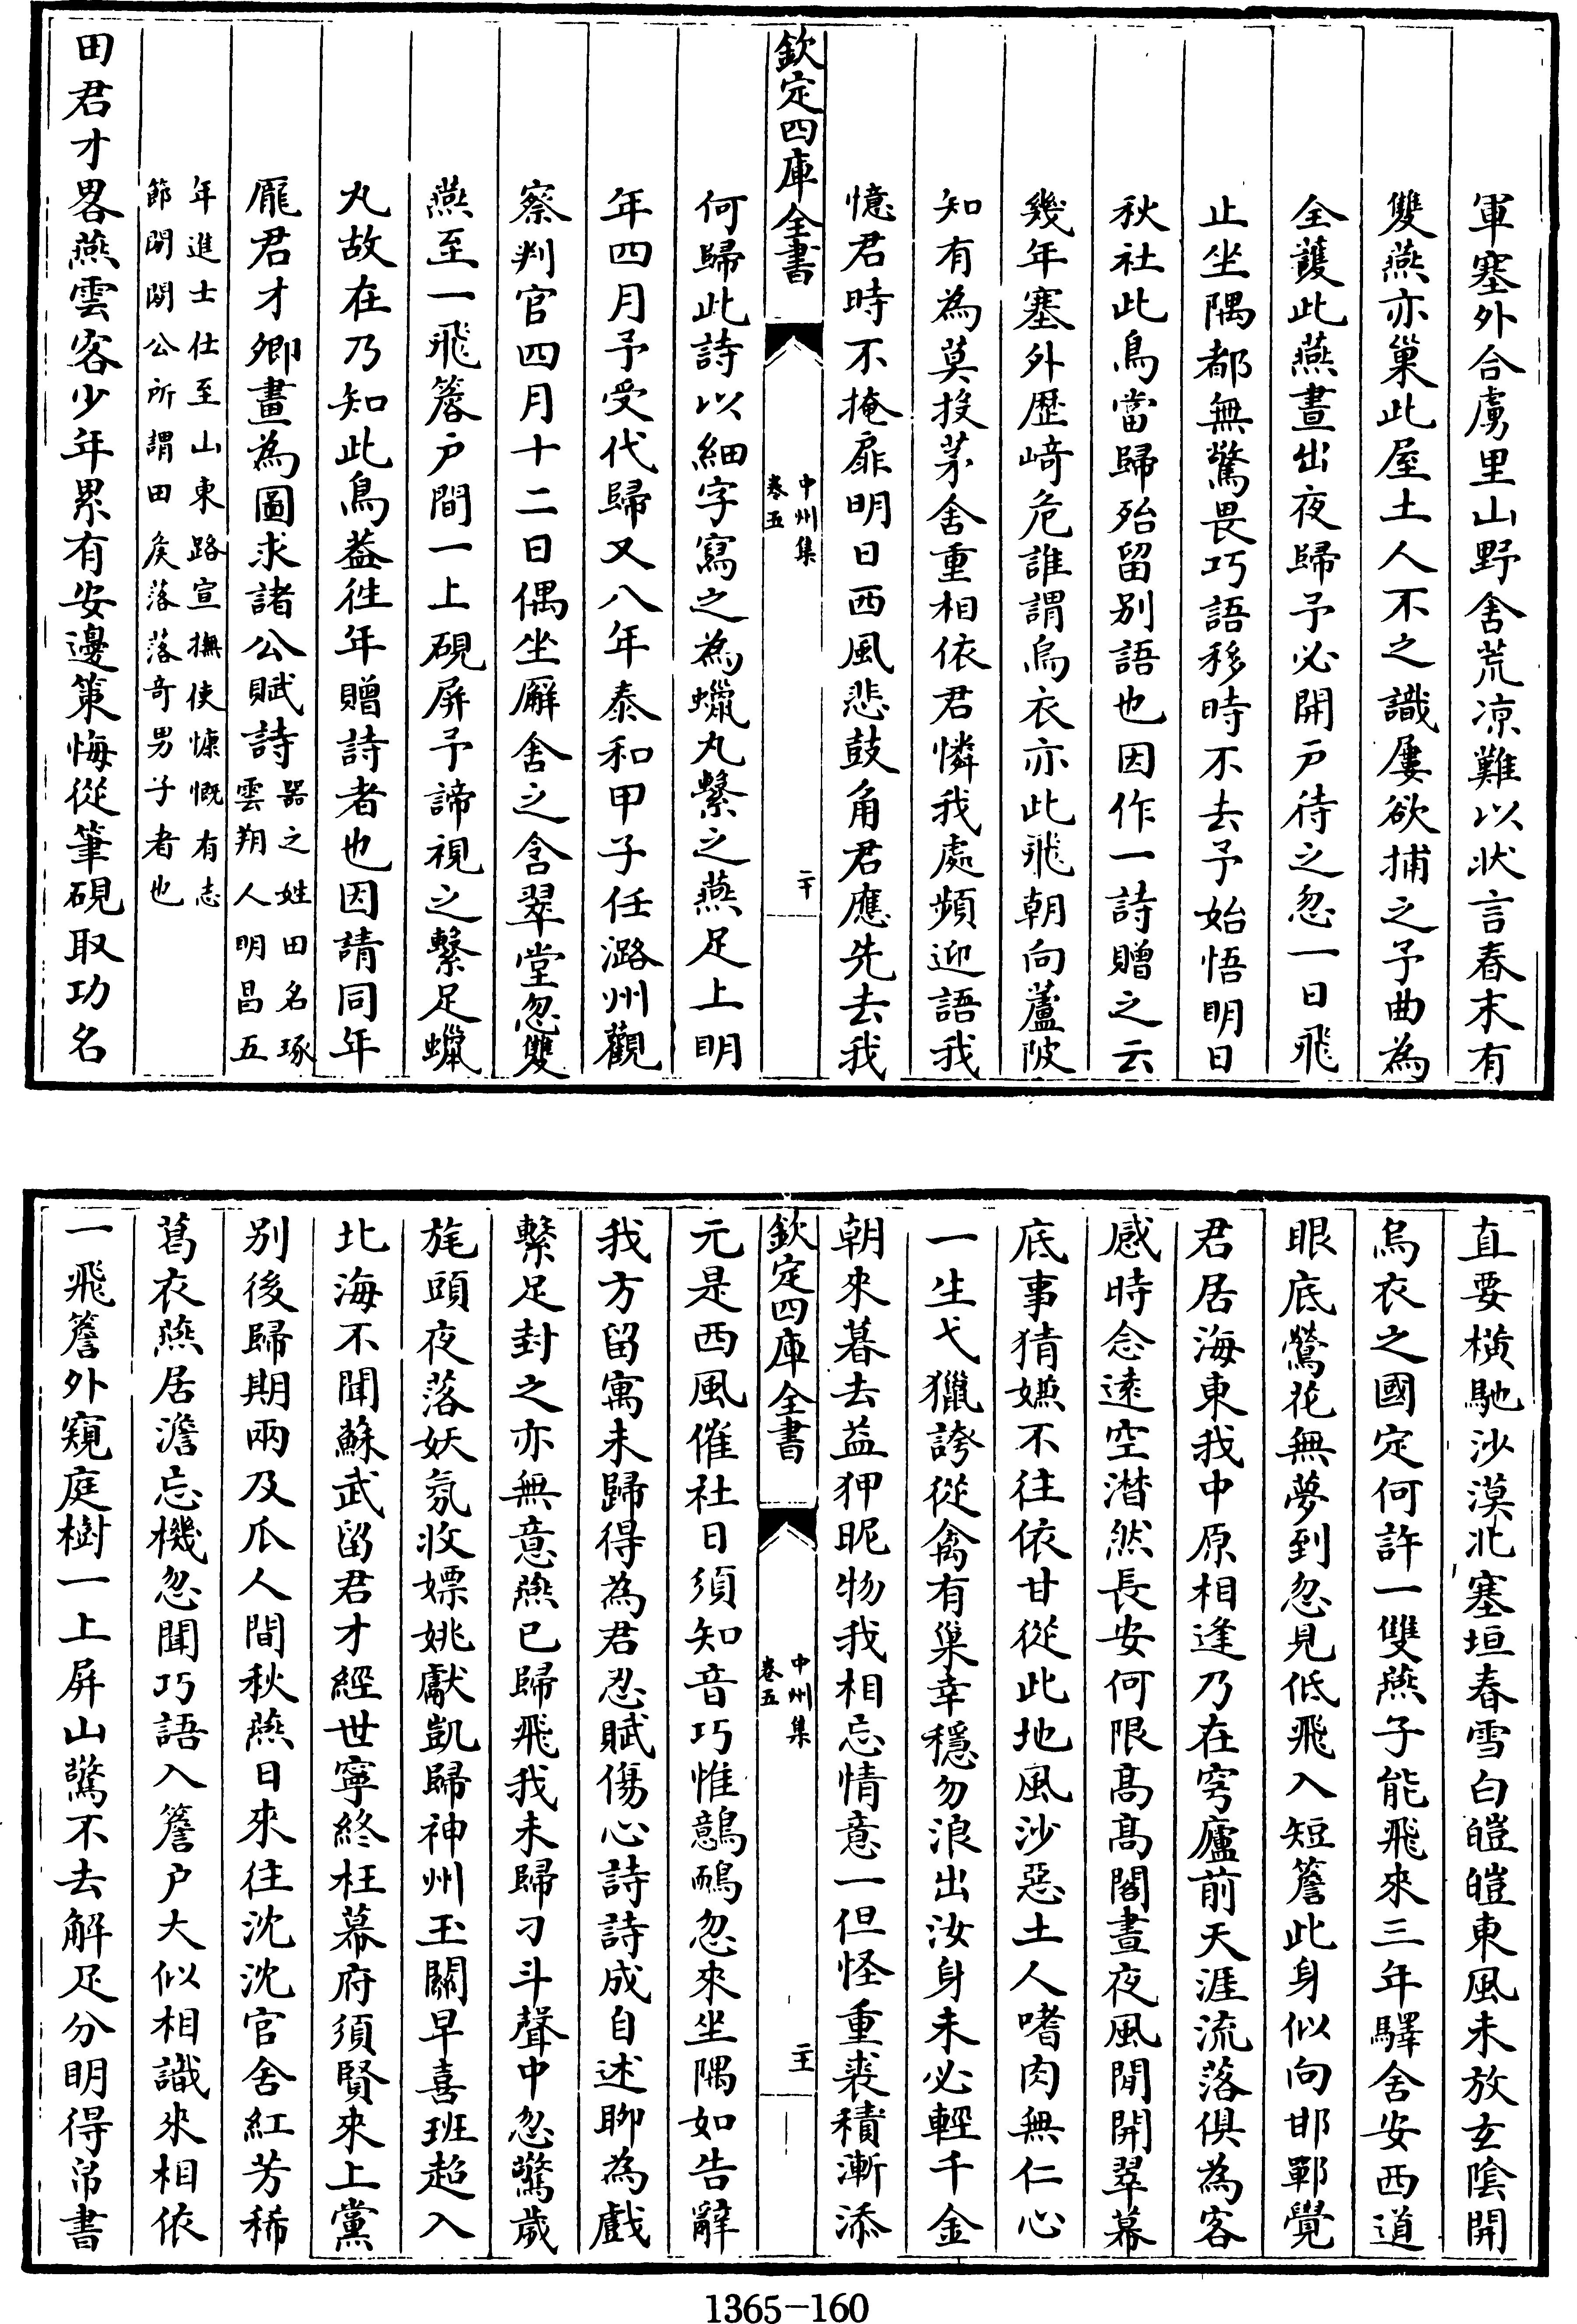 軍塞外合虜里山野舍荒凉難以狀言春末有
雙燕亦巢此屋土人不之識屢欲捕之予曲為
全䕶此燕晝出夜歸予必開戸待之忽一日飛
止坐隅都無驚畏巧語移時不去予始悟明日
秋社此鳥當歸殆留别語也因作一詩贈之云
幾年塞外歴﨑危誰謂烏衣亦此飛朝向蘆陂
知有為莫投茅舍重相依君憐我處頻迎語我
憶君時不掩扉明日西風悲鼓角君應先去我
欽定四庫全書
中州集
卷五
二十
何歸此詩以細字寫之為蠟丸繫之燕足上明
年四月予受代歸又八年泰和甲子任潞州觀
察判官四月十二日偶坐廨舍之含翠堂忽雙
燕至一飛簷户間一上硯屏予諦視之繫足蠟
丸故在乃知此鳥葢徃年贈詩者也因請同年
龎君才卿畫為圖求諸公賦詩器之姓田名琢
雲翔人明昌五
年進士仕至山東路宣撫使慷慨有志
節閑閑公所謂田矦落落奇男子者也
田君才畧燕雲客少年累有安邊策悔從筆硯取功名
直要橫馳沙漠北塞垣春雪白皚皚東風未放玄陰開
烏衣之國定何許一雙燕子能飛來三年驛舍安西道
眼底鶯花無夢到忽見低飛入短簷此身似向邯鄲覺
君居海東我中原相逢乃在穹廬前天涯流落俱為客
感時念逺空潸然長安何限髙髙閣晝夜風閒開翠幕
底事猜嫌不往依甘從此地風沙惡土人嗜肉無仁心
一生弋獵誇從禽有巢幸穩勿浪出汝身未必輕千金
朝來暮去益狎昵物我相忘情意一但怪重裘積漸添
欽定四庫全書
中州集
卷五
二十一
元是西風催社日須知音巧惟鷾鴯忽來坐隅如告辭
我方留寓未歸得為君忍賦傷心詩詩成自述聊為戲
繫足封之亦無意燕已歸飛我未歸刁斗聲中忽驚歲
旄頭夜落妖氛收嫖姚獻凱歸神州玉關早喜班超入
北海不聞蘇武留君才經世寧終枉幕府須賢來上黨
别後歸期兩及瓜人間秋燕日來往沈沈官舍紅芳稀
葛衣燕居澹忘機忽聞巧語入簷户大似相識來相依
一飛簷外窺庭樹一上屏山驚不去解足分明得帛書
1365-160